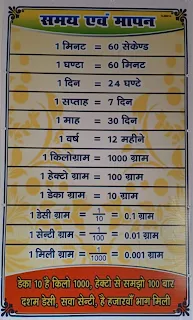 समय एवं मापन
1 मिनट = 60 सेकेण्ड
1 घण्टा = 60 मिनट
1 दिन = 24 घण्टे
1 सप्ताह = 7 दिन
1 माह = 30 दिन
1 वर्ष = 12 महीने
1 किलोग्राम = 1000 ग्राम
1 हेक्टो ग्राम = 100 ग्राम
1 डेका ग्राम = 10 ग्राम
1 डेसी ग्राम = 1/10 = 0.1 ग्राम
1 सेन्टी ग्राम = 1/100 = 0.01 ग्राम
1 मिली ग्राम = 1/1000 = 0.001 ग्राम
डेका 10 है किलो 1000, हेक्टो से समझो 100 बार
दशम डेसी, सवा सेन्टी, है हजारवाँ भाग मिली